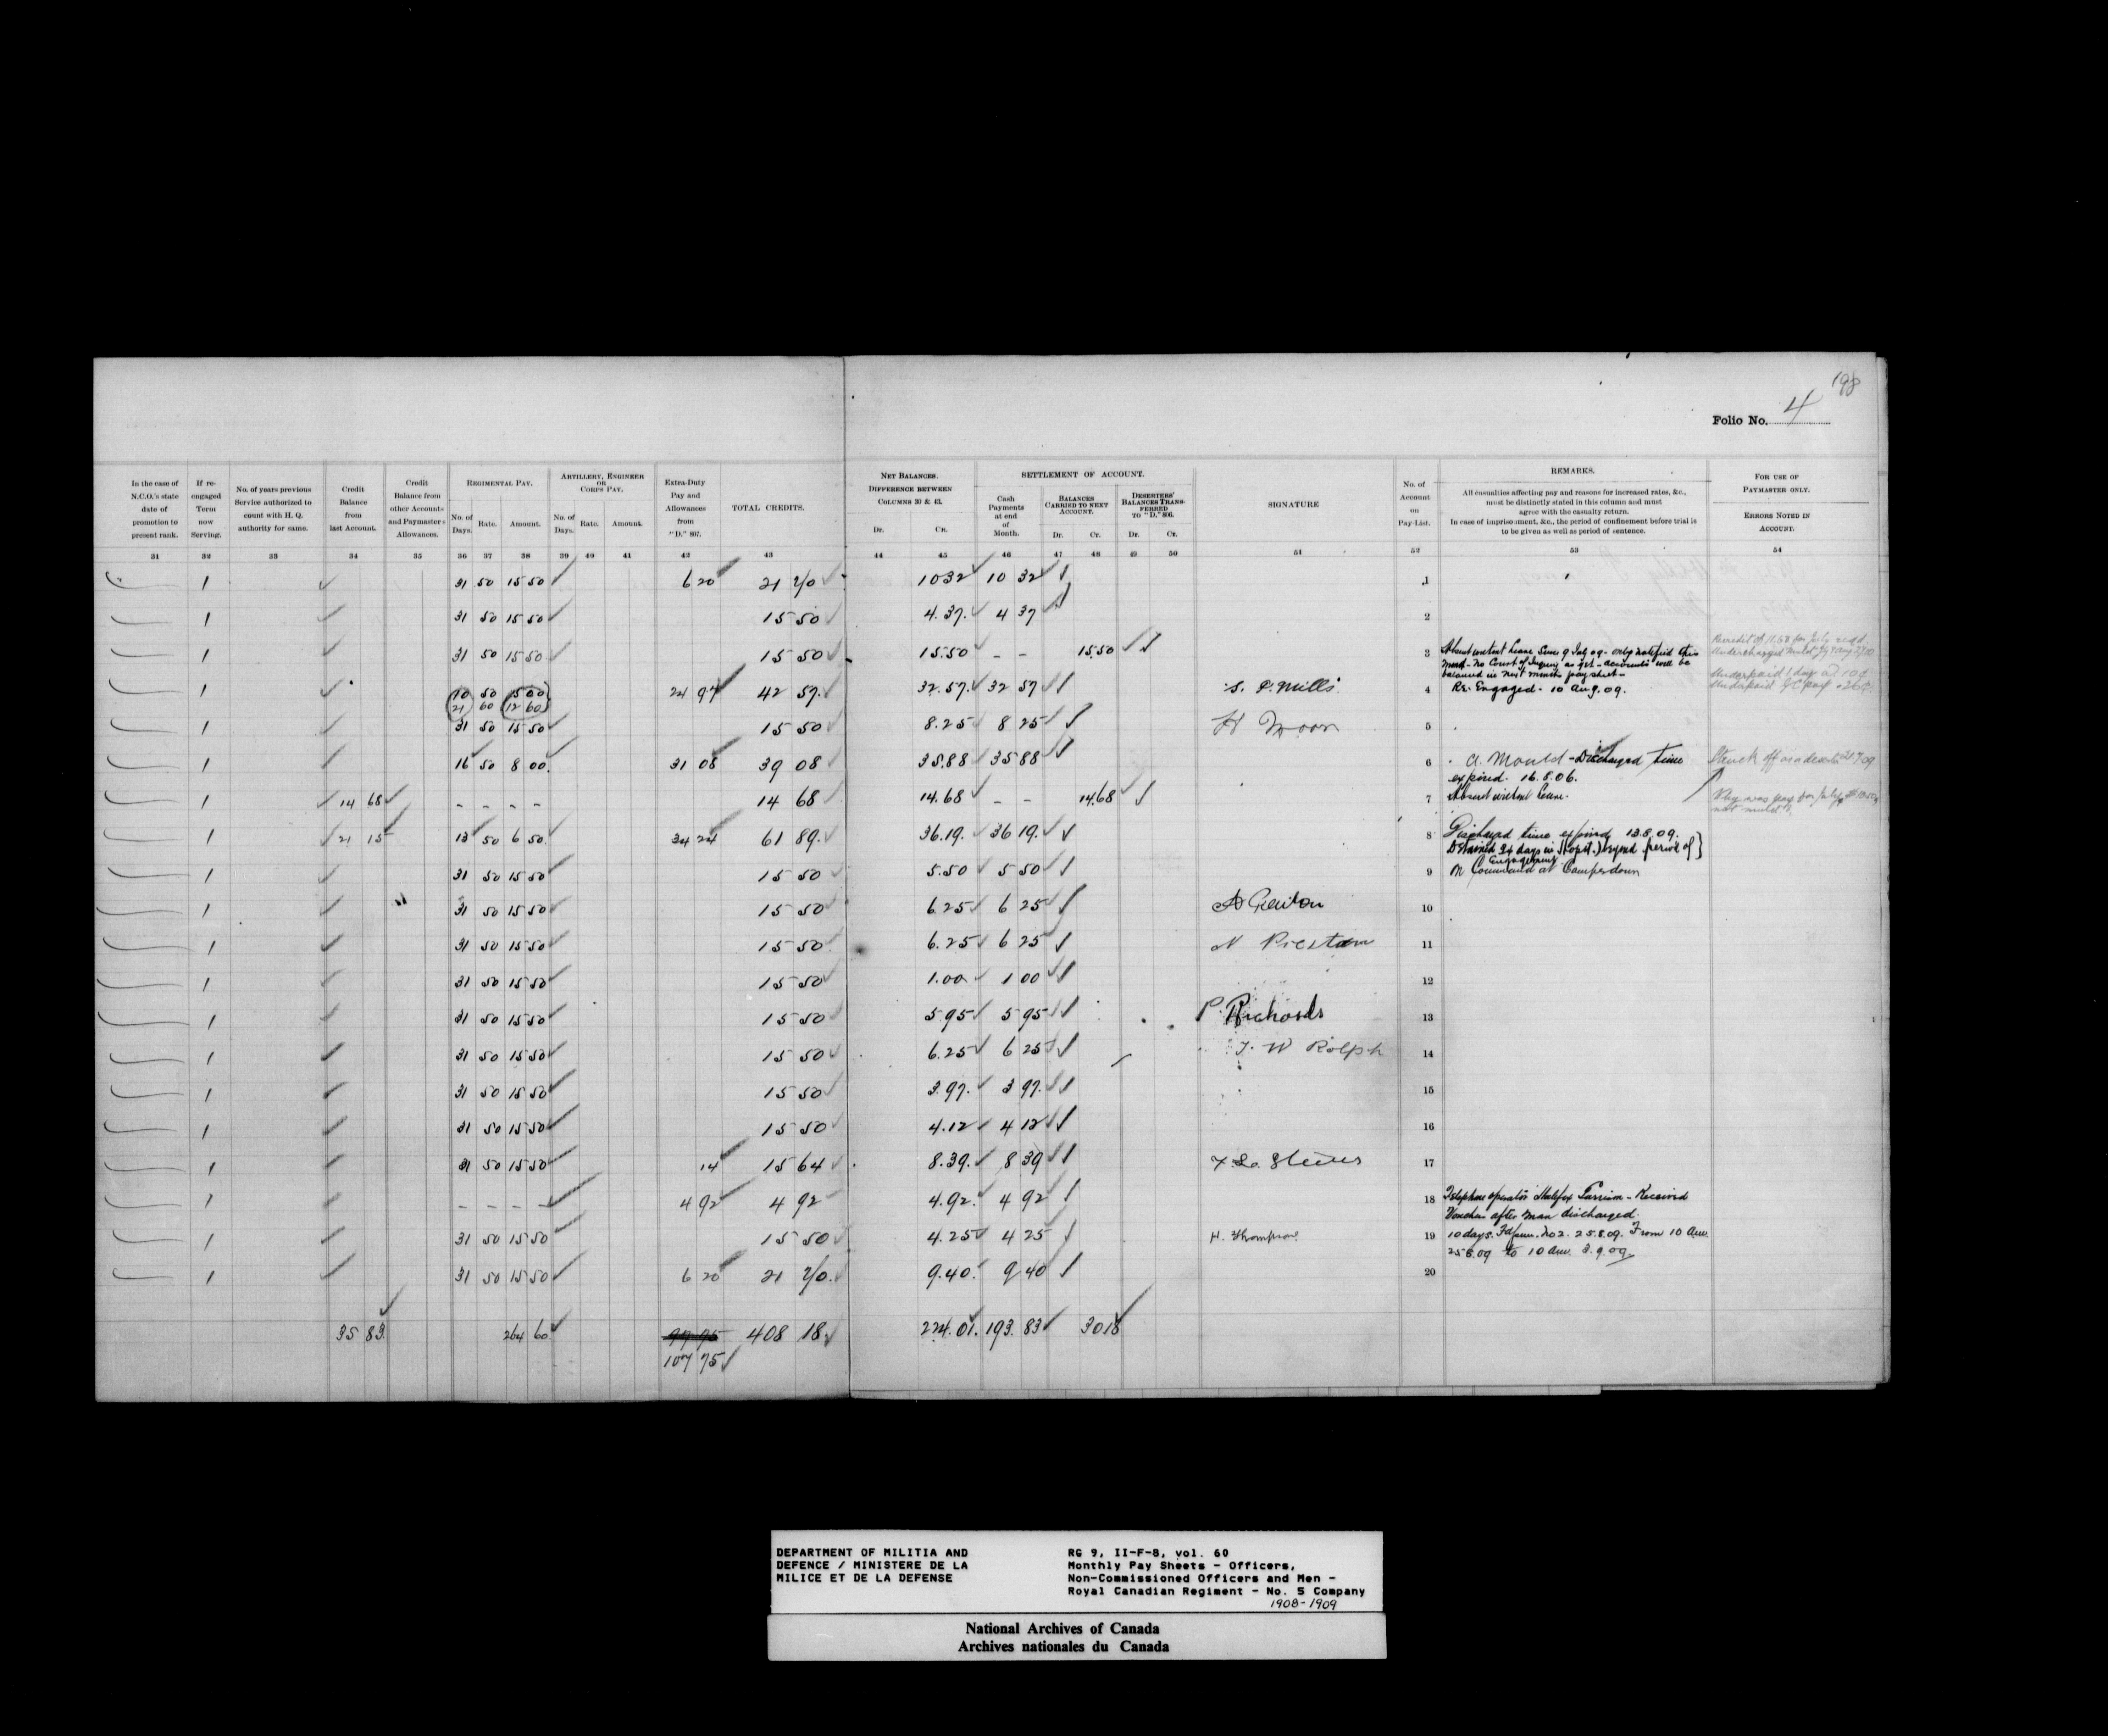 198
Folio No. 4
In the case of N.C.O.'s state date of promotion to present rank.
If re-engaged Term now Serving.
No. of years previous Service authorized to count with H. Q. authority for same.
Credit Balance from last Account.
Credit Balance from other Accounts and Paymasters Allowances.
REGIMENTAL PAY.
No. of Days. Rate. Amount.
ARTILLERY, ENGINEER OR CORPS PAY.
No. of Days. Rate. Amount.
Extra-Duty Pay and Allowances from "D." 807.
TOTAL CREDITS.
NET BALANCES.
DIFFERENCE BETWEEN COLUMNS 30 & 43.
Dr. Cr.
SETTLEMENT OF ACCOUNT.
Cash Payments at end of Month.
BALANCES CARRIED TO NEXT ACCOUNT.
Dr. Cr.
DESERTERS' BALANCES TRANSFERRED TO "D." 806.
Dr. Cr.
SIGNATURE
No. of Account on Pay-List.
REMARKS.
All casualties affecting pay and reasons for increased rates, &c., must be distinctly stated in this column and must agree with the casualty return.
In case of imprisonment, &c., the period of confinement before trial is to be given as well as period of sentence.
FOR USE OF PAYMASTER ONLY.
ERRORS NOTED IN ACCOUNT.
31 32 33 34 35 36 37 38 39 40 41 42 43 44 45 46 47 48 49 50 51 52 53 54
1 31 50 15 50 6 20 21 70 10 32 10 32 1
1 31 50 15 50 15 50 4.37. 4 37 2
1 31 50 15 50 15 50 15.50 - - 15.50 3 Absent without leave since 9 July 09 - only notified this
month - No Court of Inquiry as yet - accounts will be
balanced in next months pay sheet -
1 10 50 5 00 24 97 42 57. 32.57. 32 57 S. P. Mills 4 Re-Engaged - 10 Aug. 09.
21 60 12 60
Underpaid 1 day @ 10¢
1 31 50 15 50 15 50 8.25 8 25 H Moon 5
1 16 50 8 00. 31 08 39 08 35.88 35 88 6 A. Mould - Discharged time
expired. 16.8.06.
Struck off as a deserter 21.7.09
1 14 68 - - - - 14 68 14.68 - - 14.68 7 Absent without leave.
1 21 15 13 50 6 50. 34 24 61 89. 36.19. 36 19. 8 Discharged time expired 13.8.09.
Detained 24 days in Hospt. beyond period of }
Engagement
1 31 50 15 50 15 50 5.50 5 50 9 On Command at Camperdown
1 31 50 15 50 15 50 6.25 6 25 10
1 31 50 15 50 15 50 6.25 6 25 N Preston 11
1 31 50 15 50 15 50 1.00 1 00 12
1 31 50 15 50 15 50 5.95 5 95 P. Richards 13
1 31 50 15 50 15 50 6.25 6 25 J. W Rolph 14
1 31 50 15 50 15 50 3.97. 3 97. 15
1 31 50 15 50 15 50 4.12 4 12 16
1 31 50 15 50 14 15 64 8.39. 8 39 17
1 - - - - 4 92 4 92 4.92. 4 92 18 Telephone operator Halifax Garrison - Received
Voucher after man discharged.
1 31 50 15 50 15 50 4.25 4 25 H. Thompson 19 10 days. No 2. 25.8.09. From 10 am.
25.8.09 to 10 am. 3.9.09
1 31 50 15 50 6 20 21 70. 9.40. 9 40 20
35 83. 264 60. 408 18. 224.01. 193. 83 30 18
107 75
DEPARTMENT OF MILITIA AND
DEFENCE / MINISTERE DE LA
MILICE ET DE LA DEFENSE
RG 9, II-F-8, vol. 60
Monthly Pay Sheets - Officers,
Non-Commissioned Officers and Men -
Royal Canadian Regiment - No. 5 Company
1908-1909
National Archives of Canada
Archives nationales du Canada